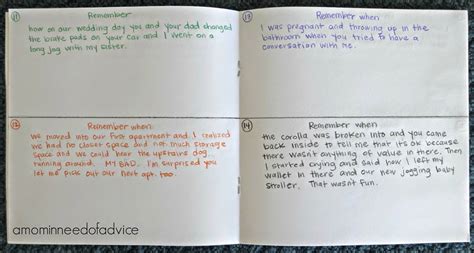 11
Remember
how on our wedding day you and your dad changed
the brake pads on your car and I went on a
long jog with my sister.
12
Remember when
we moved into our first apartment and I realized
we had no closet space and not much storage
space and we could hear the upstairs dog
running around. MY BAD. I'm surprised you
let me pick out our next apt. too.
13
Remember when
I was pregnant and throwing up in the
bathroom when you tried to have a
conversation with me.
14
Remember when
the corolla was broken into and you came
back inside to tell me that its ok because
there wasn't anything of value in there. Then
I started crying and said how I left my
wallet in there and our new jogging baby
stroller. That wasnt fun.
amominneedofadvice